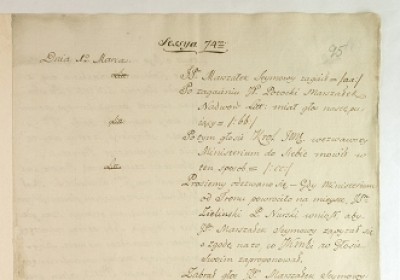 Sessya 74ta
95
Dnia 12 Marca
JP. Marszałek Seymowy zagaił = /:aa:/
Po zagaieniu JP. Potocki Marszałek
Nadwor: Litt: miał głos nastempu
iący = /:bb:/
Po tym głosie Krol Jmć wezwawszy
Ministerium do Siebie mowił w
ten sposob = /:cc:/
Prosiemy odezwano się – Gdy Ministerium
od Tronu powrociło na mieysce, JPan
Zieliński P. Nurski wniosł, aby
JP. Marszałek Seymowy zapytał się
o zgodę na to, co w Głosie
Swoim zaproponował.
Zabrał głos JP. Marszałek Seymowy